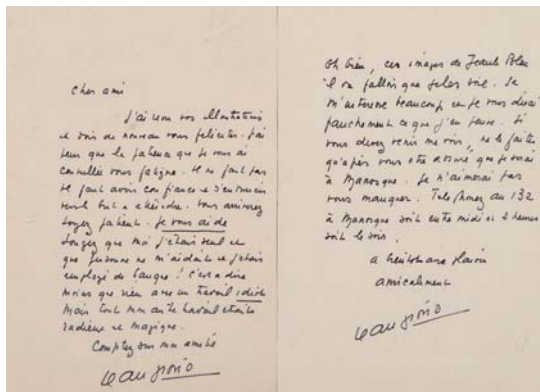 Cher ami
J'ai reçu vos illustrations
et dois de nouveau vous féliciter. J'ai
peur que la patience que je vous ai
conseillée vous fatigue. Il ne faut pas
Il faut avoir confiance et
vers le but à atteindre. Vous arriverez
soyez patient. Je vous aide
Songez que moi j'étais seul et
que personne ne m'aidait et j'étais
employé de banque ! C'est à dire
moins que rien avec un travail idiot
Mais tout mon autre travail était
radieux et magique.
Comptez sur mon amitié
Jean Giono
Oh bien, ces images de Jean le Bleu
il
m'intéresse beaucoup et je vous dirai
franchement ce que j'en pense. Si
vous devez venir me voir, ne le faites
qu'après vous être assuré que je serai
à Manosque. Je n'aimerai pas
vous manquer. Téléphonez au 132
à Manosque soit entre midi et 2 heures
soit le soir.
à
amicalement
Jean Giono